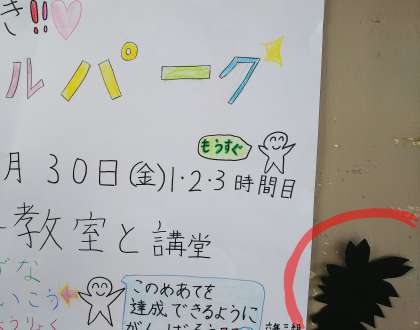 き!!
ルパーク
もうすぐ
月30日(金)1・2・3時間目
教室と講堂
ずな
いこう
りょく
このめあてを
達成できるように